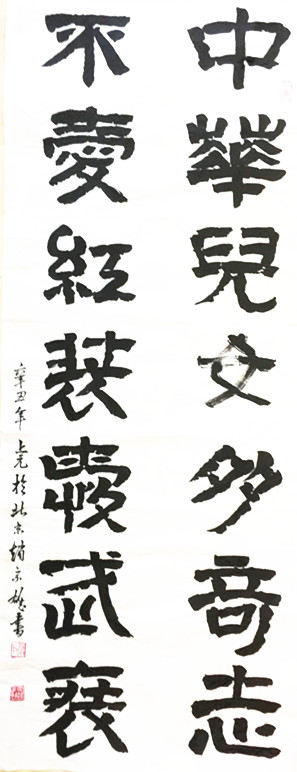 中華兒女多奇志
不愛紅裝愛武裝
辛丑年上元於北京趙京書